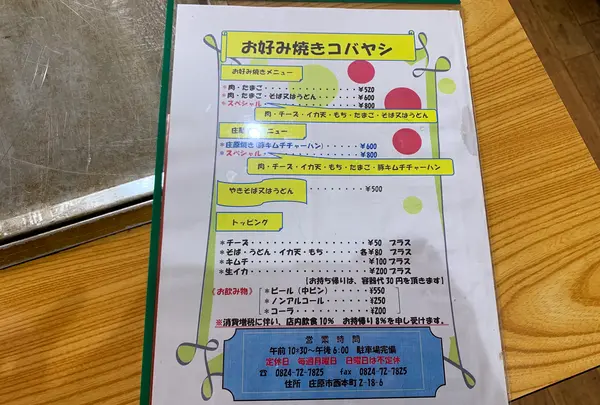 お好み焼きコバヤシ
お好み焼きメニュー
*肉・たまご ¥520
*肉・たまご・そば又はうどん ¥600
*スペシャル ¥800
肉・チーズ・イカ天・もち・たまご・そば又はうどん
メニュー
*庄原焼き(豚キムチチャーハン) ¥600
*スペシャル ¥800
肉・チーズ・イカ天・もち・たまご・豚キムチチャーハン
やきそば又はうどん ¥500
トッピング
*チーズ ¥50 プラス
*そば・うどん・イカ天・もち 各¥80 プラス
*キムチ ¥100 プラス
*生イカ ¥200 プラス
[お持ち帰りは、容器代30円を頂きます]
《お飲み物》 *ビール(中ビン) ¥550
*ノンアルコール ¥250
*コーラ ¥200
*消費増税に伴い、店内飲食10% お持帰り8%を申し受けます。
営業時間
午前10:30~午後6:00 駐車場完備
定休日 毎週月曜日 日曜日は不定休
☎ 0824-72-7825 fax 0824-72-7825
住所 庄原市西本町2-18-6